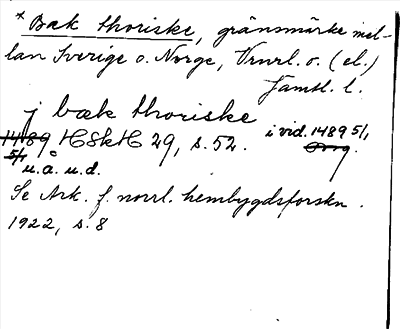 * Bæk thoriske, gränsmärke mel-
lan Sverige o. Norge, Vrnrl. o. (el.)
Jämtl. l.
j bæk thoriske
1489 HSkH 29, s. 52. i vid. 1489 5/1,
5/1 Orig.
u. å. u. d.
Se Ark. f. norrl. hembygdsforskn.
1922, s. 8